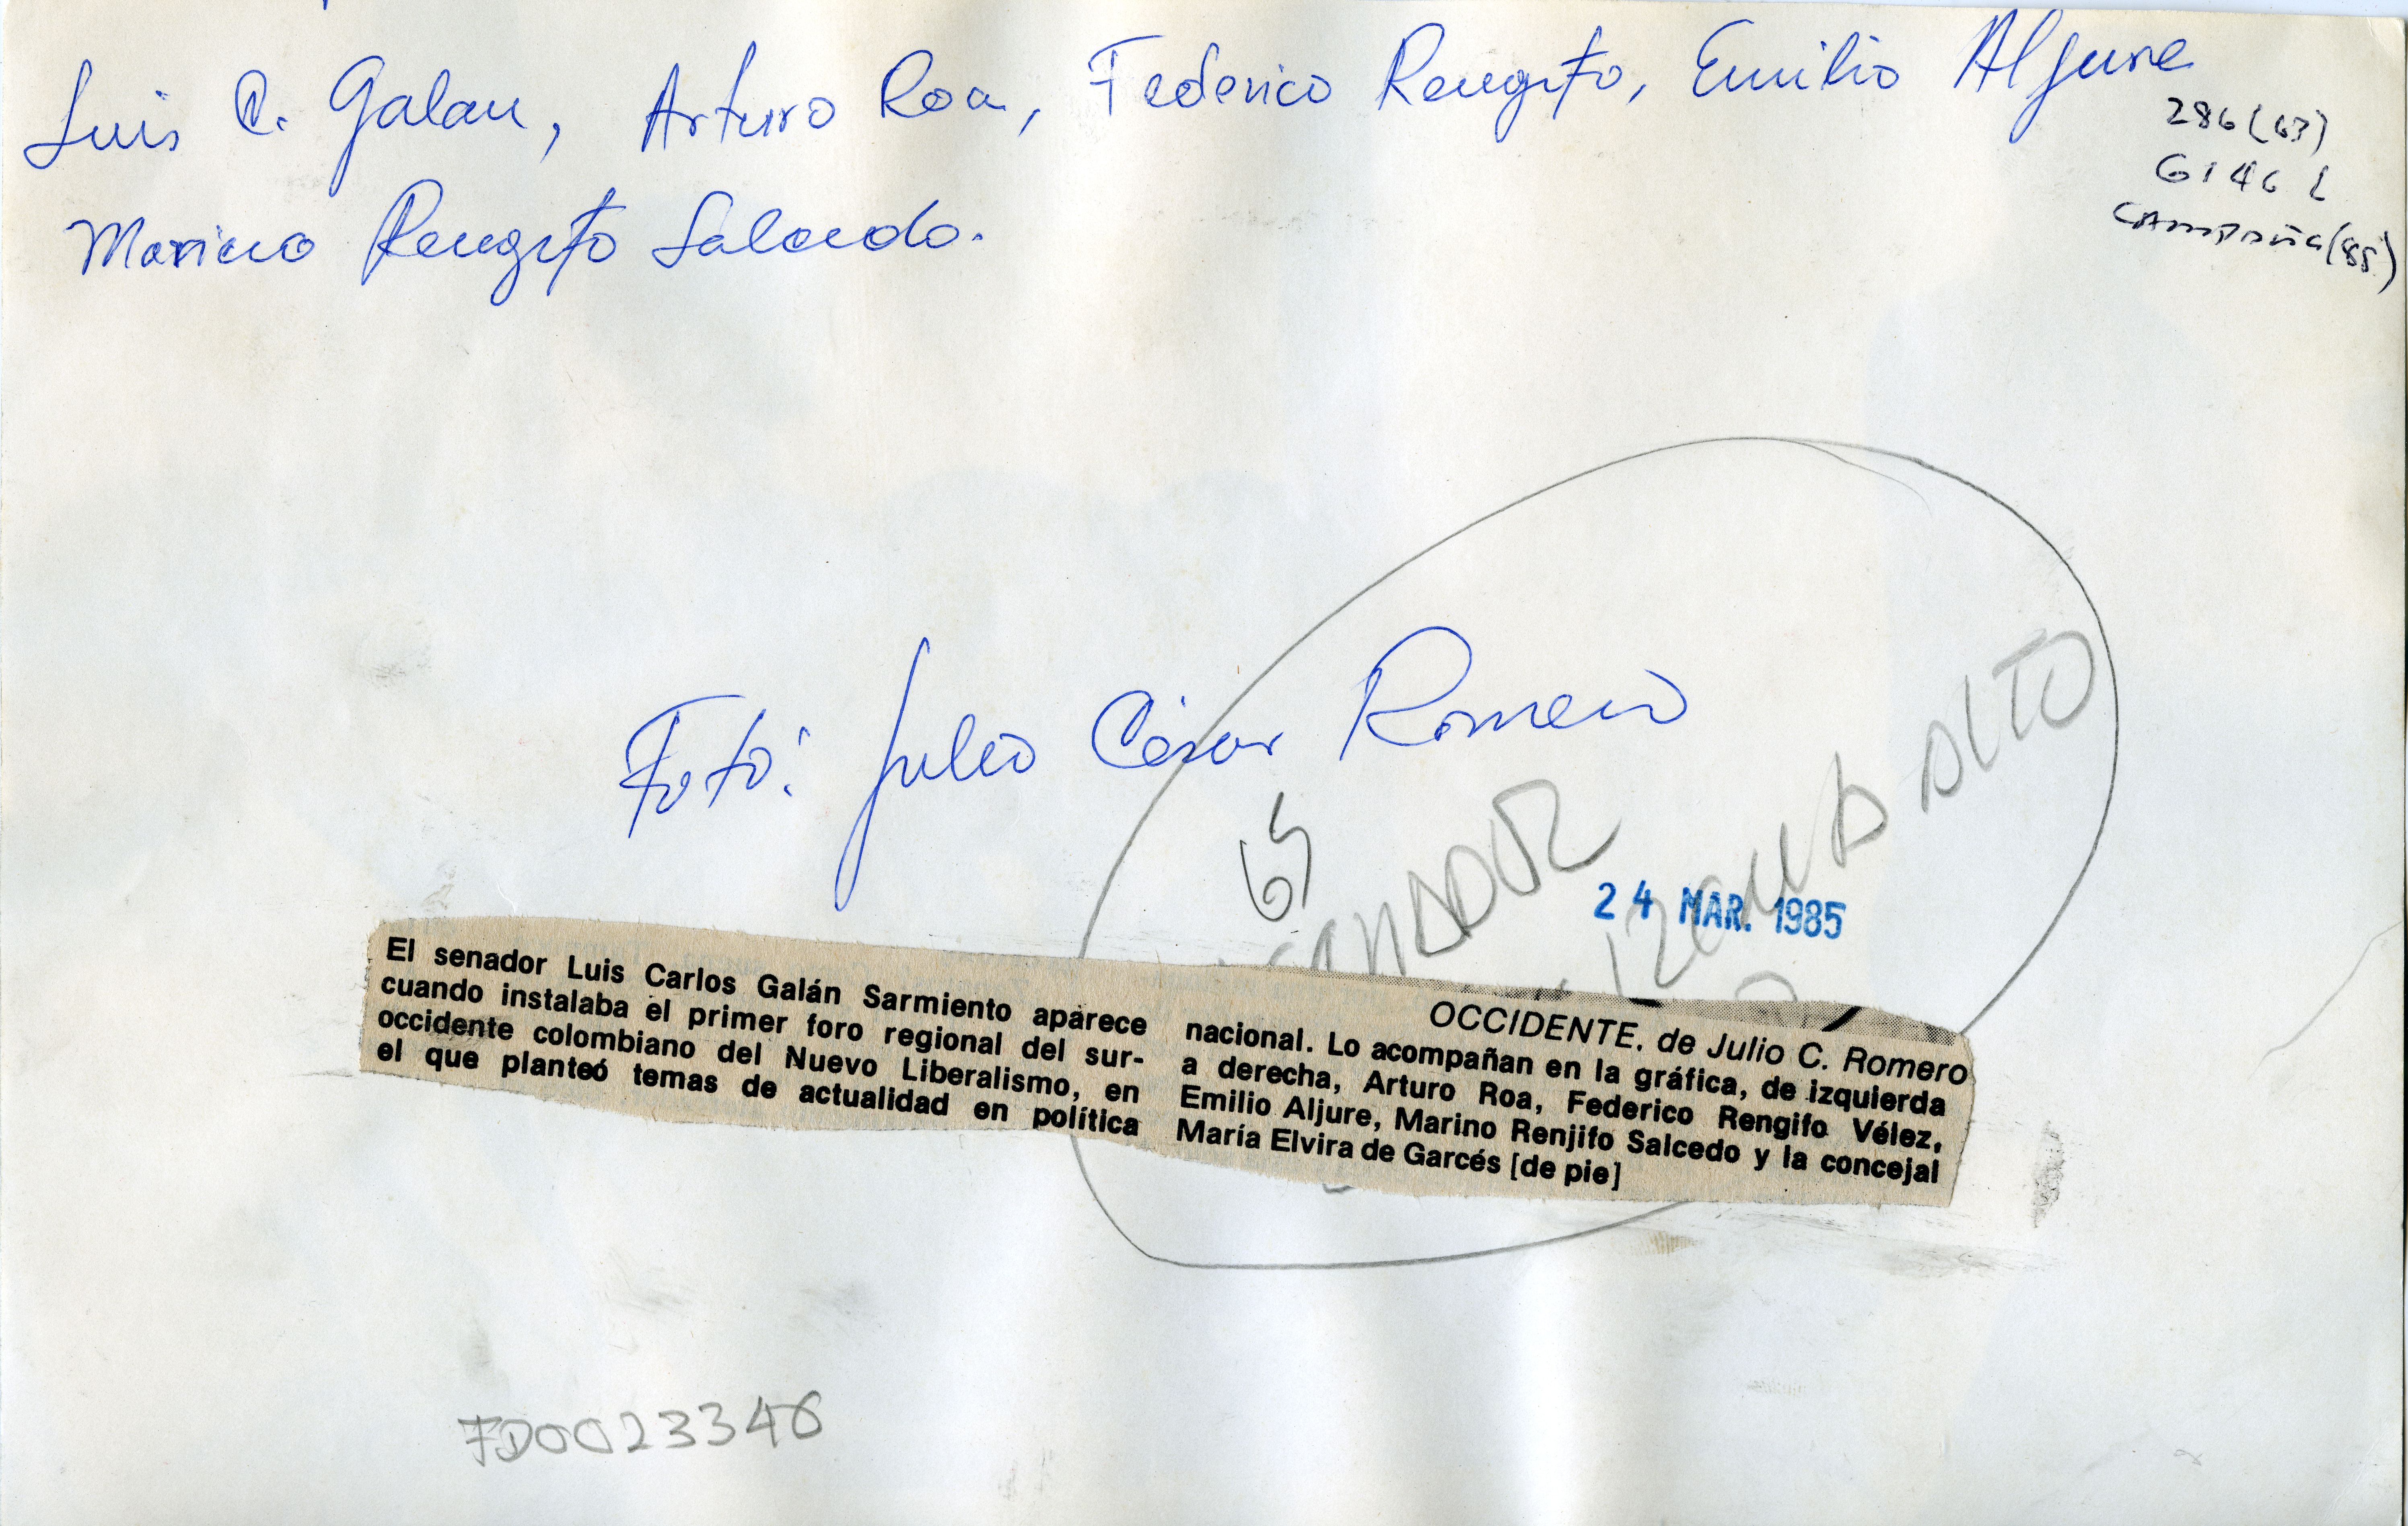 Luis C. Galan, Arturo Roa, Federico Rengifo, Emilio Aljure
286 (63)
G146 L
CAMPAÑA (85)
Marino Rengifo Salcedo.
Foto: Julio César Romero
65
ALTO
24 MAR. 1985
El senador Luis Carlos Galán Sarmiento aparece
cuando instalaba el primer foro regional del sur-
occidente colombiano del Nuevo Liberalismo, en
el que planteó temas de actualidad en política
OCCIDENTE. de Julio C. Romero
nacional. Lo acompañan en la gráfica, de izquierda
a derecha, Arturo Roa, Federico Rengifo Vélez,
Emilio Aljure, Marino Renjifo Salcedo y la concejal
María Elvira de Garcés [de pie]
FD0023346